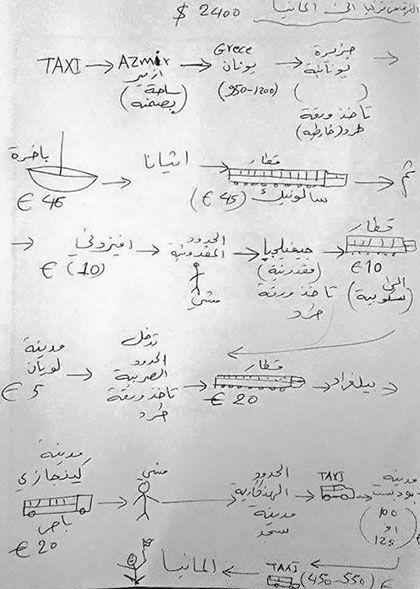 من تركيا الى المانيا
$ 2400
TAXI → AZmir ازمير ساحة (بصمنه) → Grece يونان (950-1200) → جزيرة يونانية ( ) تاخذ ورقة طرد (خارطة) →
باخرة € 45 → اثيانا → قطار سالونيك (€ 45) → ثم
→ افيزوني € (10) → الحدود المقدونية مشي → جيفيليجيا (مقدونية) تاخذ ورقة طرد → قطار € 10 الى (سكوبية)
مدينة لويان € 5 → تدخل الحدود الصربية تاخذ ورقة طرد → قطار € 20 → بيلغراد
مدينة كينجازي باص € 20 → مشي → الحدود الهنغارية مدينة → TAXI → مدينة بودبست (100 او 125)
المانيا ← TAXI (450-550) € ←